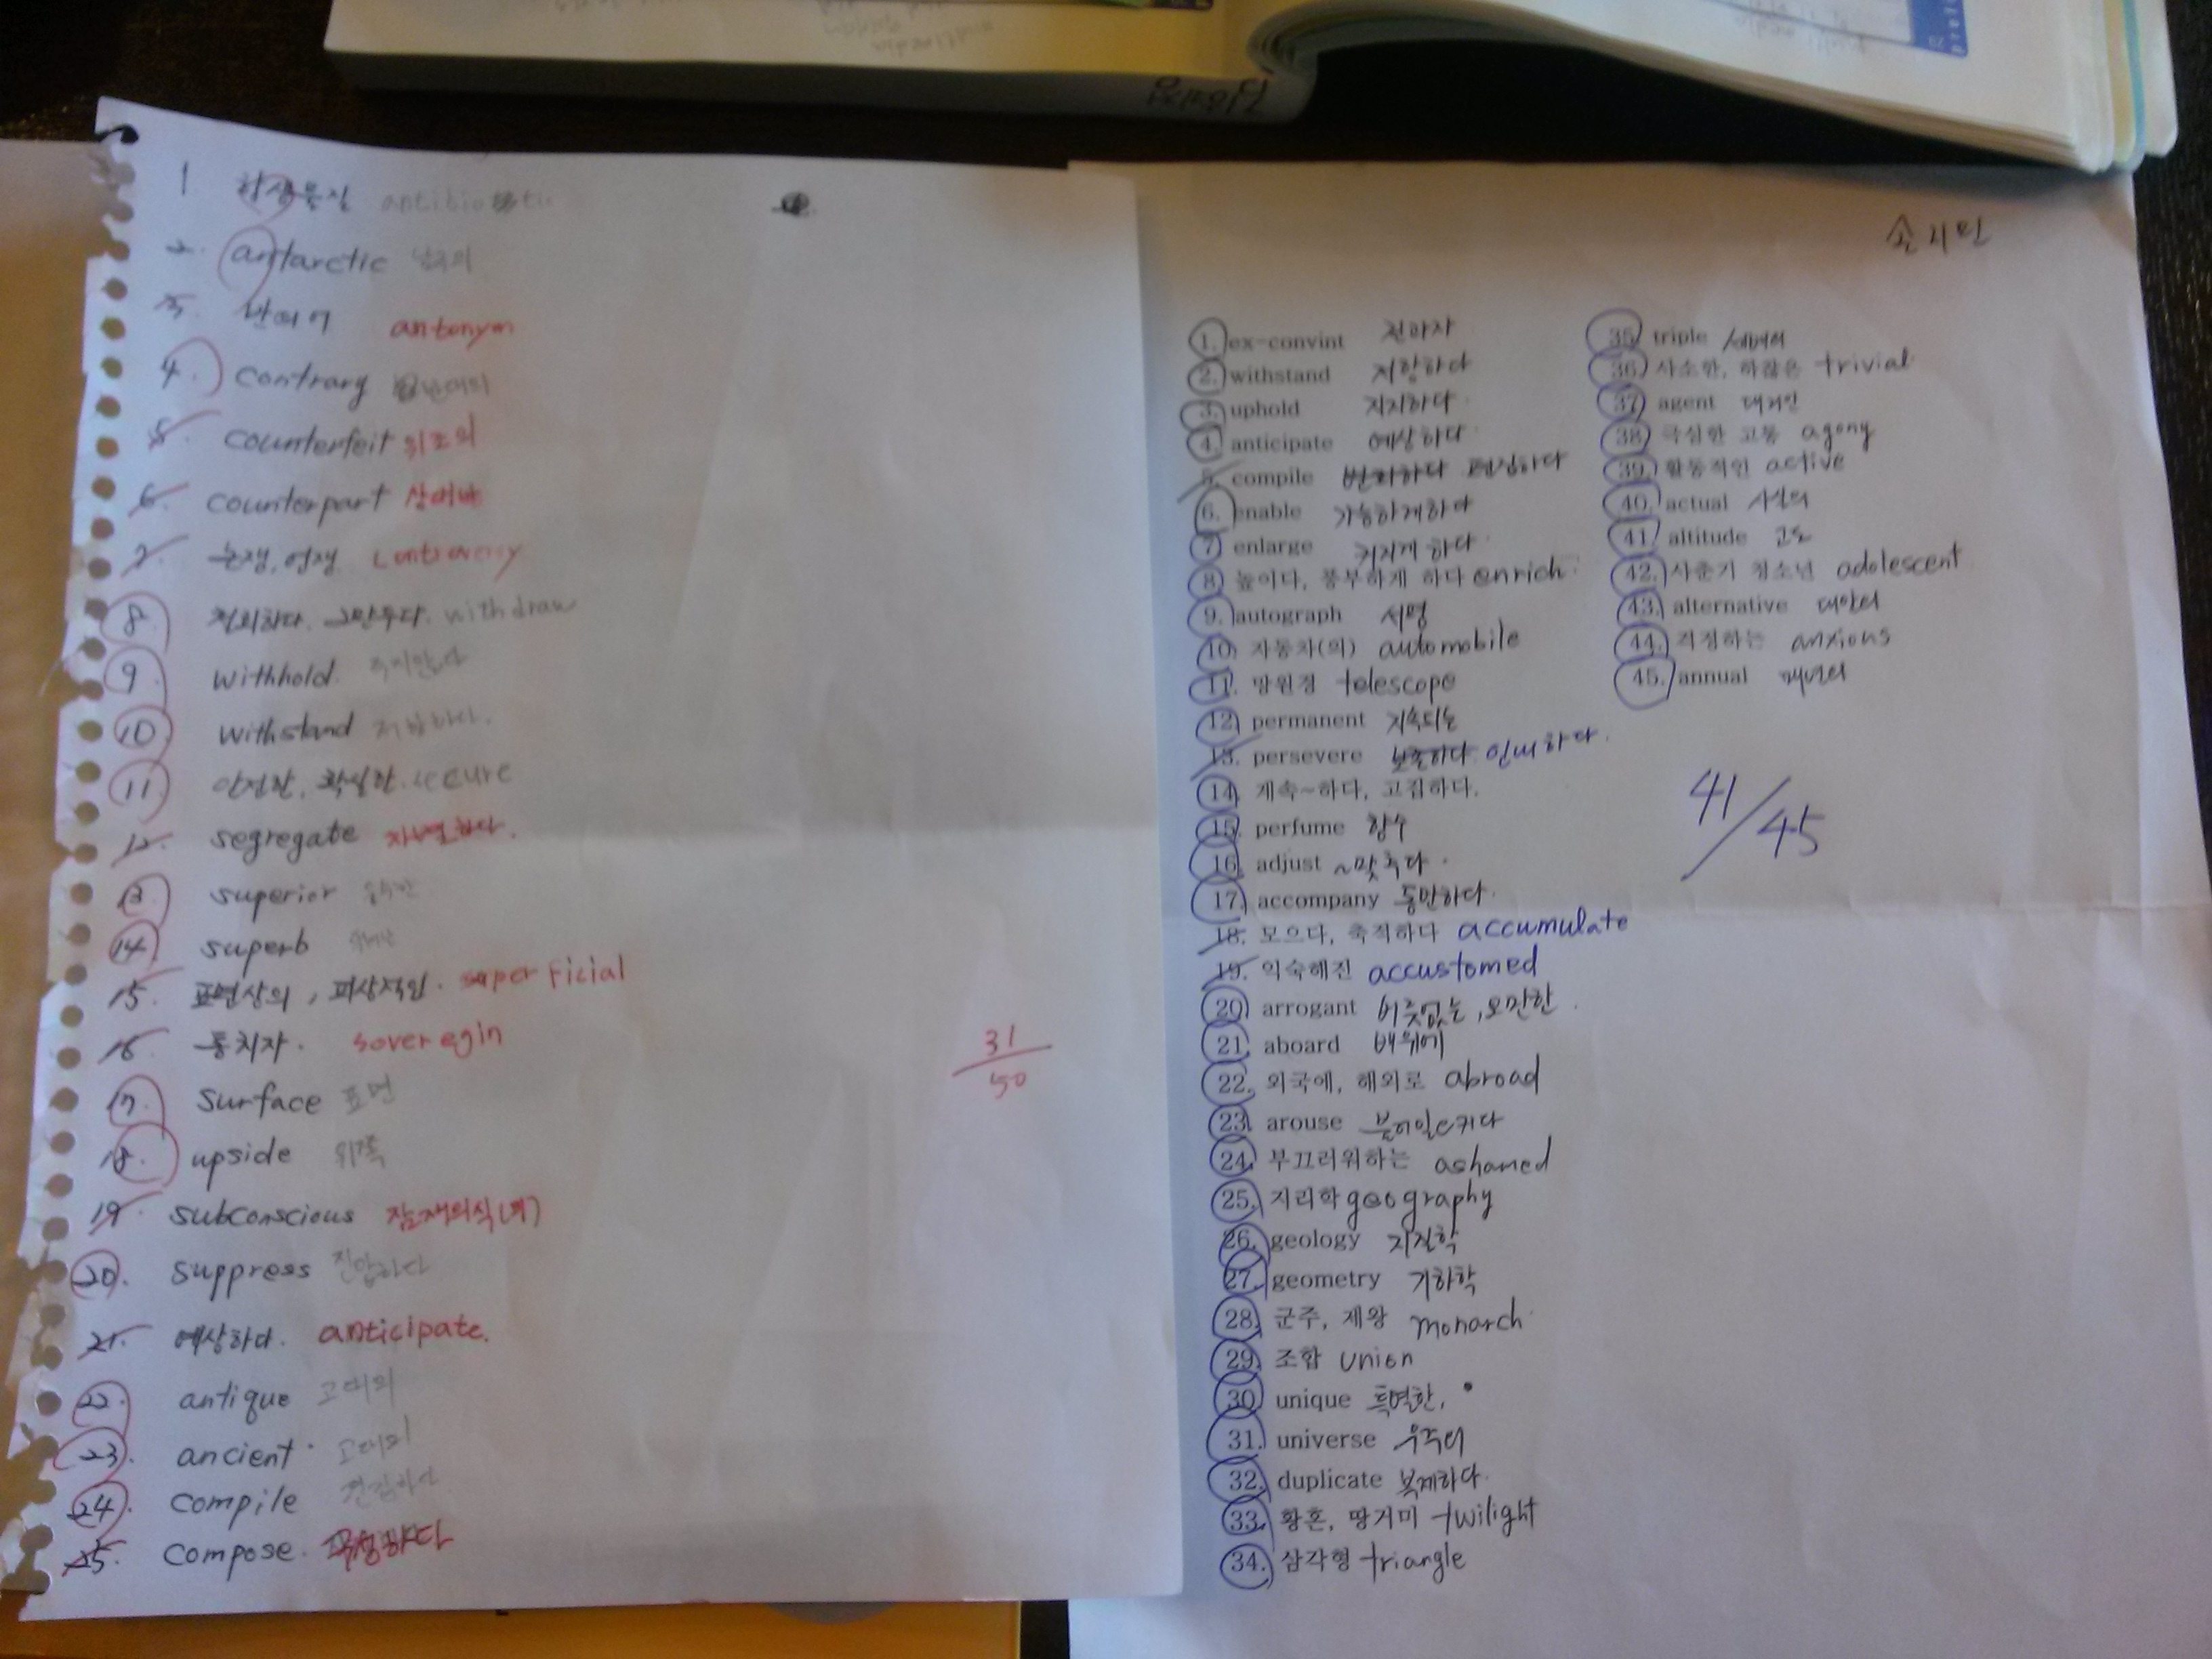 1 항생물질 antibiotic
2. antarctic 남극의
3. 반의어 antonym
4. contrary
5. counterfeit 위조의
6. counterpart 상대방
7. 논쟁, 언쟁 controversy
8. 철회하다. 그만두다. withdraw
9. withhold 주지않다
10. withstand 저항하다.
11. 안전한, 확실한. secure
12. segregate 차별하다.
13. superior 우수한
14. superb
15. 표면상의, 피상적인. superficial
16. 통치자. soveregin
17. surface 표면
18. upside 위쪽
19. subconscious 잠재의식(의)
20. suppress 진압하다
21. 예상하다. anticipate.
22. antique 고대의
23. ancient. 고대의
24. compile 편집하다
25. compose. 구성하다
31
50
손지민
1. ex-convint 전과자
2. withstand 저항하다
3. uphold 지지하다
4. anticipate 예상하다
5. compile 변화하다 편집하다
6. enable 가능하게하다
7. enlarge 커지게 하다
8. 높이다, 풍부하게 하다 enrich
9. autograph 서명
10. 자동차(의) automobile
11. 망원경 telescope
12. permanent 지속되는
13. persevere 보존하다 인내하다.
14. 계속~하다, 고집하다.
15. perfume 향수
16. adjust ~맞추다.
17. accompany 동반하다.
18. 모으다, 축적하다 accumulate
19. 익숙해진 accustomed
20. arrogant 버릇없는, 오만한.
21. aboard 배위에
22. 외국에, 해외로 abroad
23. arouse 불러일으키다
24. 부끄러워하는 ashamed
25. 지리학 geography
26. geology 지질학
27. geometry 기하학
28. 군주, 제왕 monarch
29. 조합 union
30. unique 특별한,
31. universe 우주의
32. duplicate 복제하다.
33. 황혼, 땅거미 twilight
34. 삼각형 triangle
35. triple 세배의
36. 사소한, 하찮은 trivial
37. agent 대리인
38. 극심한 고통 agony
39. 활동적인 active
40. actual 사실의
41. altitude 고도
42. 사춘기 청소년 adolescent
43. alternative 대안의
44. 걱정하는 anxious
45. annual 매년의
41/45